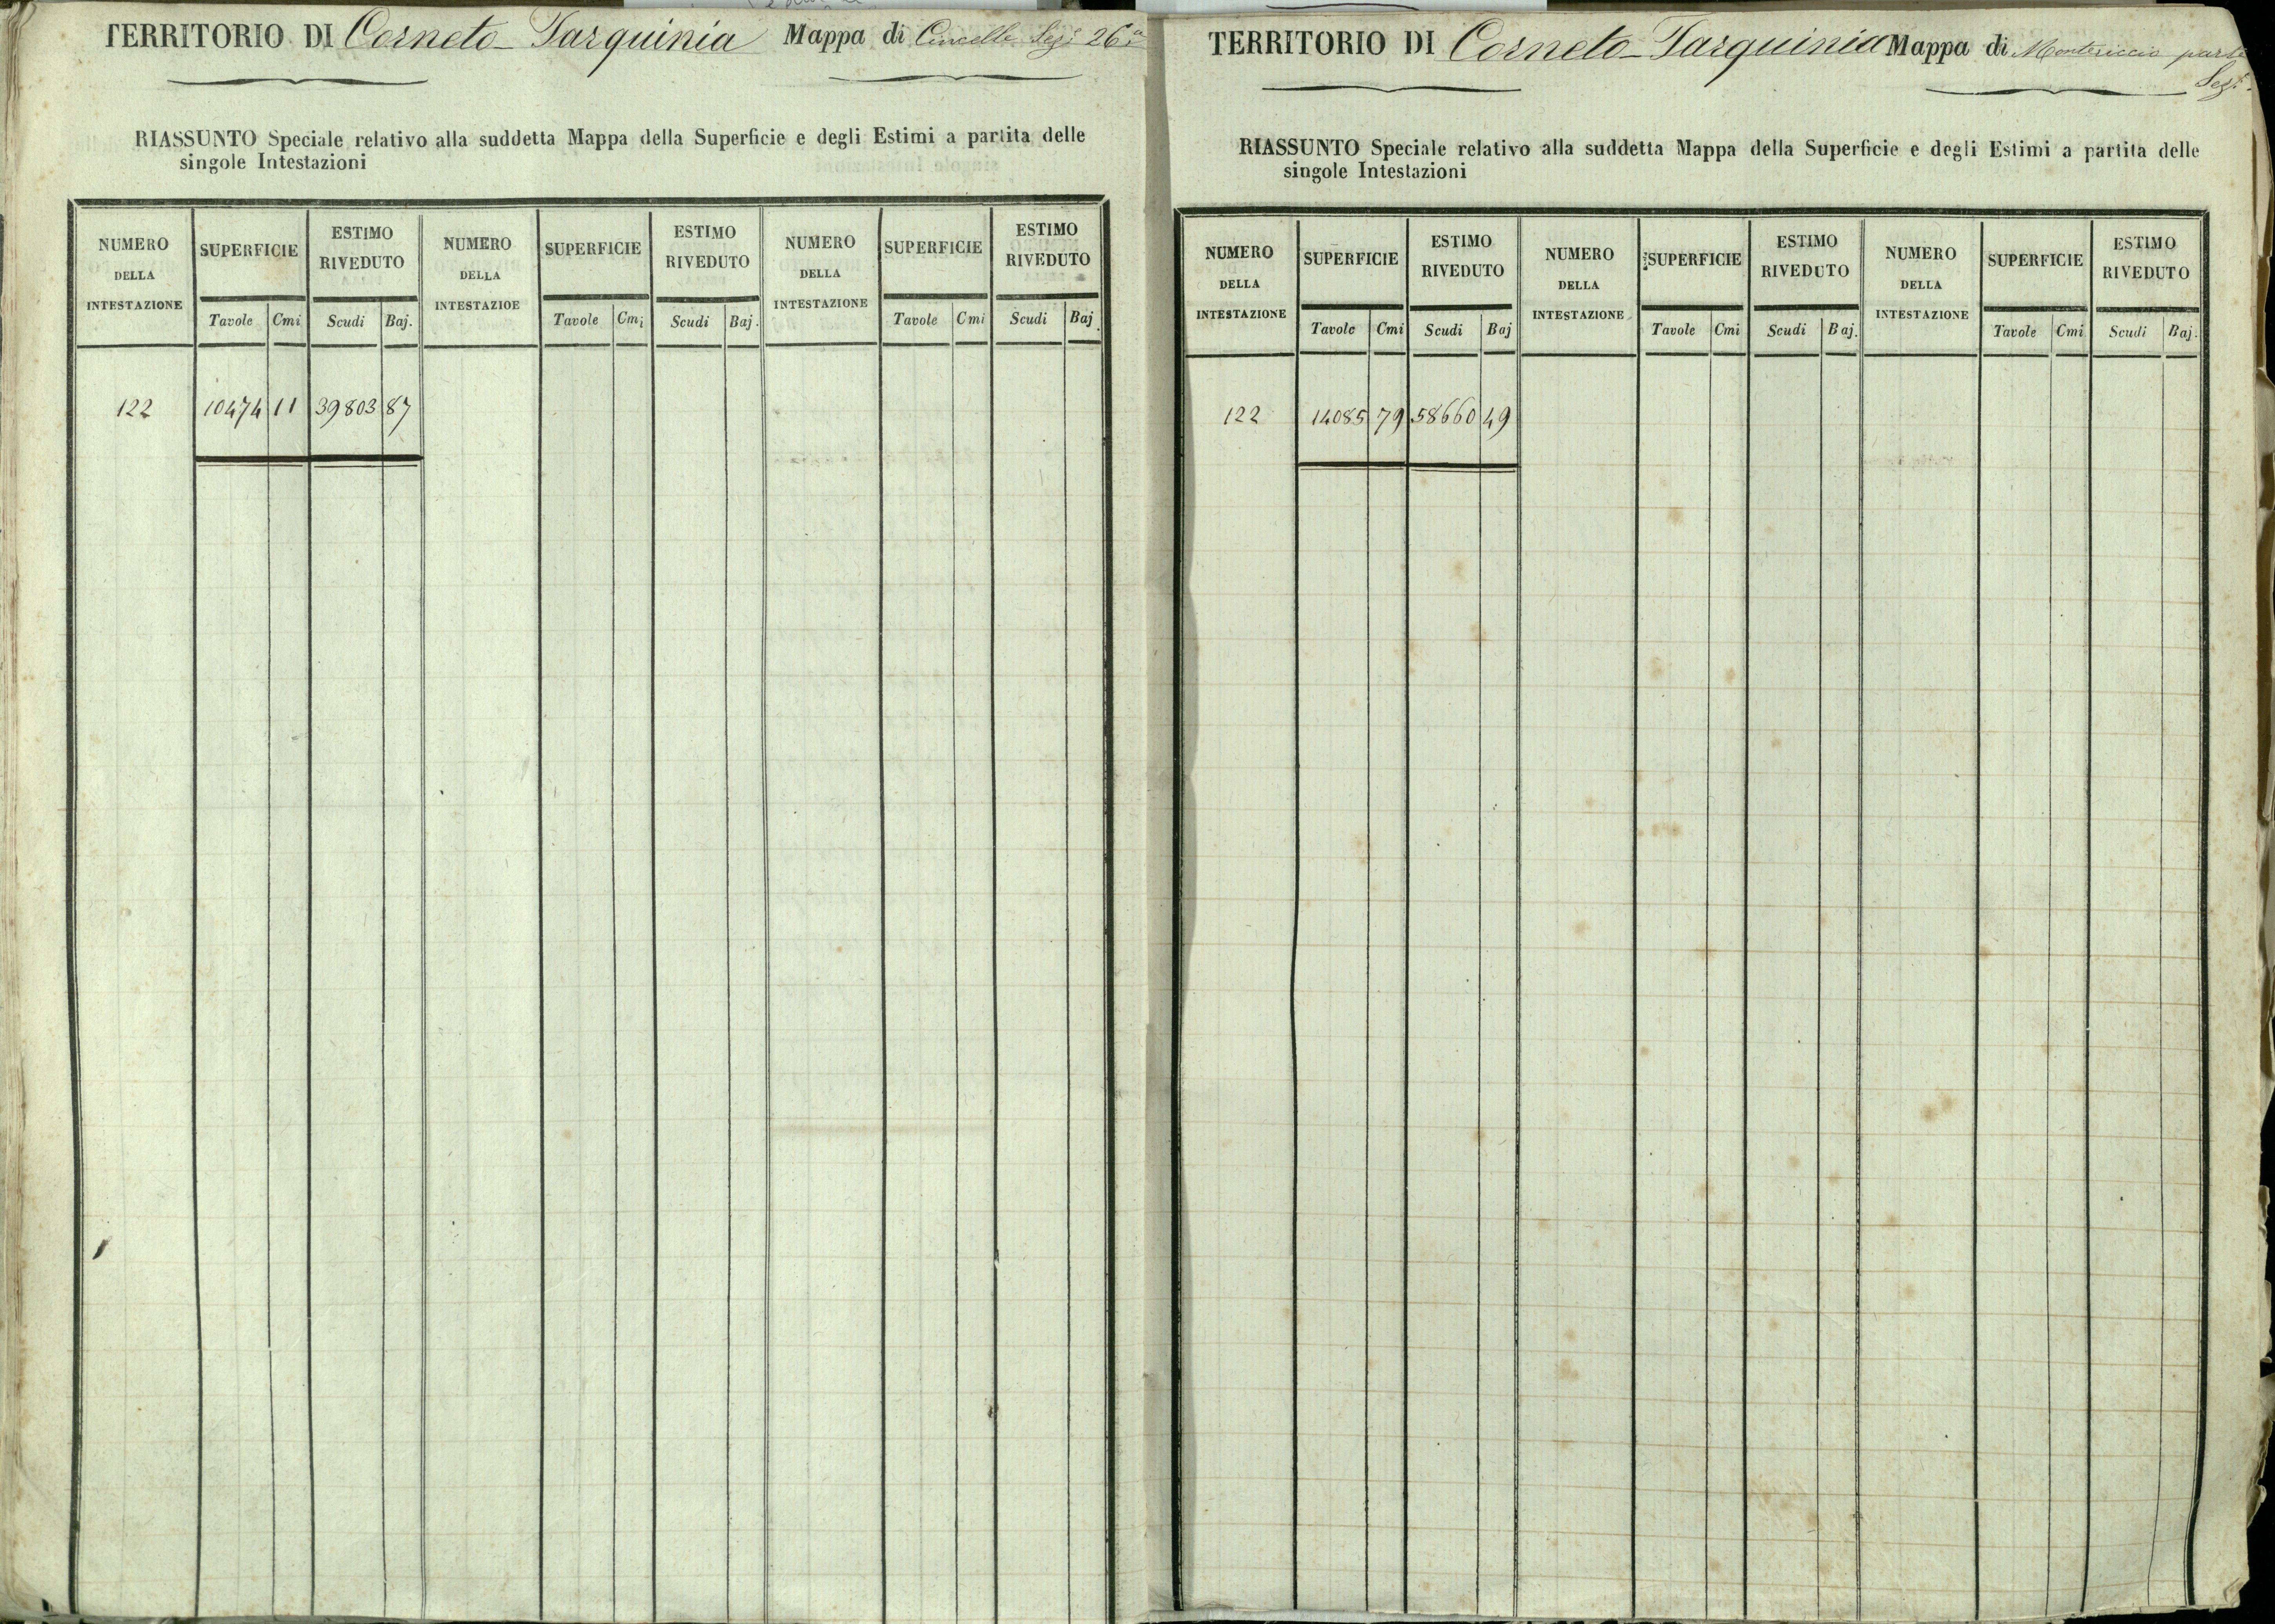 TERRITORIO DI Corneto Tarquinia Mappa di Cencelle Sez.e 26.a
RIASSUNTO Speciale relativo alla suddetta Mappa della Superficie e degli Estimi a partita delle
singole Intestazioni
NUMERO DELLA INTESTAZIONE SUPERFICIE ESTIMO RIVEDUTO NUMERO DELLA INTESTAZIOE SUPERFICIE ESTIMO RIVEDUTO NUMERO DELLA INTESTAZIONE SUPERFICIE ESTIMO RIVEDUTO
Tavole Cmi Scudi Baj. Tavole Cmi Scudi Baj. Tavole Cmi Scudi Baj.
122 10474 11 39803 87
TERRITORIO DI Corneto Tarquinia Mappa di Montericcio parte
Sez.e
RIASSUNTO Speciale relativo alla suddetta Mappa della Superficie e degli Estimi a partita delle
singole Intestazioni
NUMERO DELLA INTESTAZIONE SUPERFICIE ESTIMO RIVEDUTO NUMERO DELLA INTESTAZIONE SUPERFICIE ESTIMO RIVEDUTO NUMERO DELLA INTESTAZIONE SUPERFICIE ESTIMO RIVEDUTO
Tavole Cmi Scudi Baj Tavole Cmi Scudi Baj. Tavole Cmi Scudi Baj.
122 14085 79 58660 49